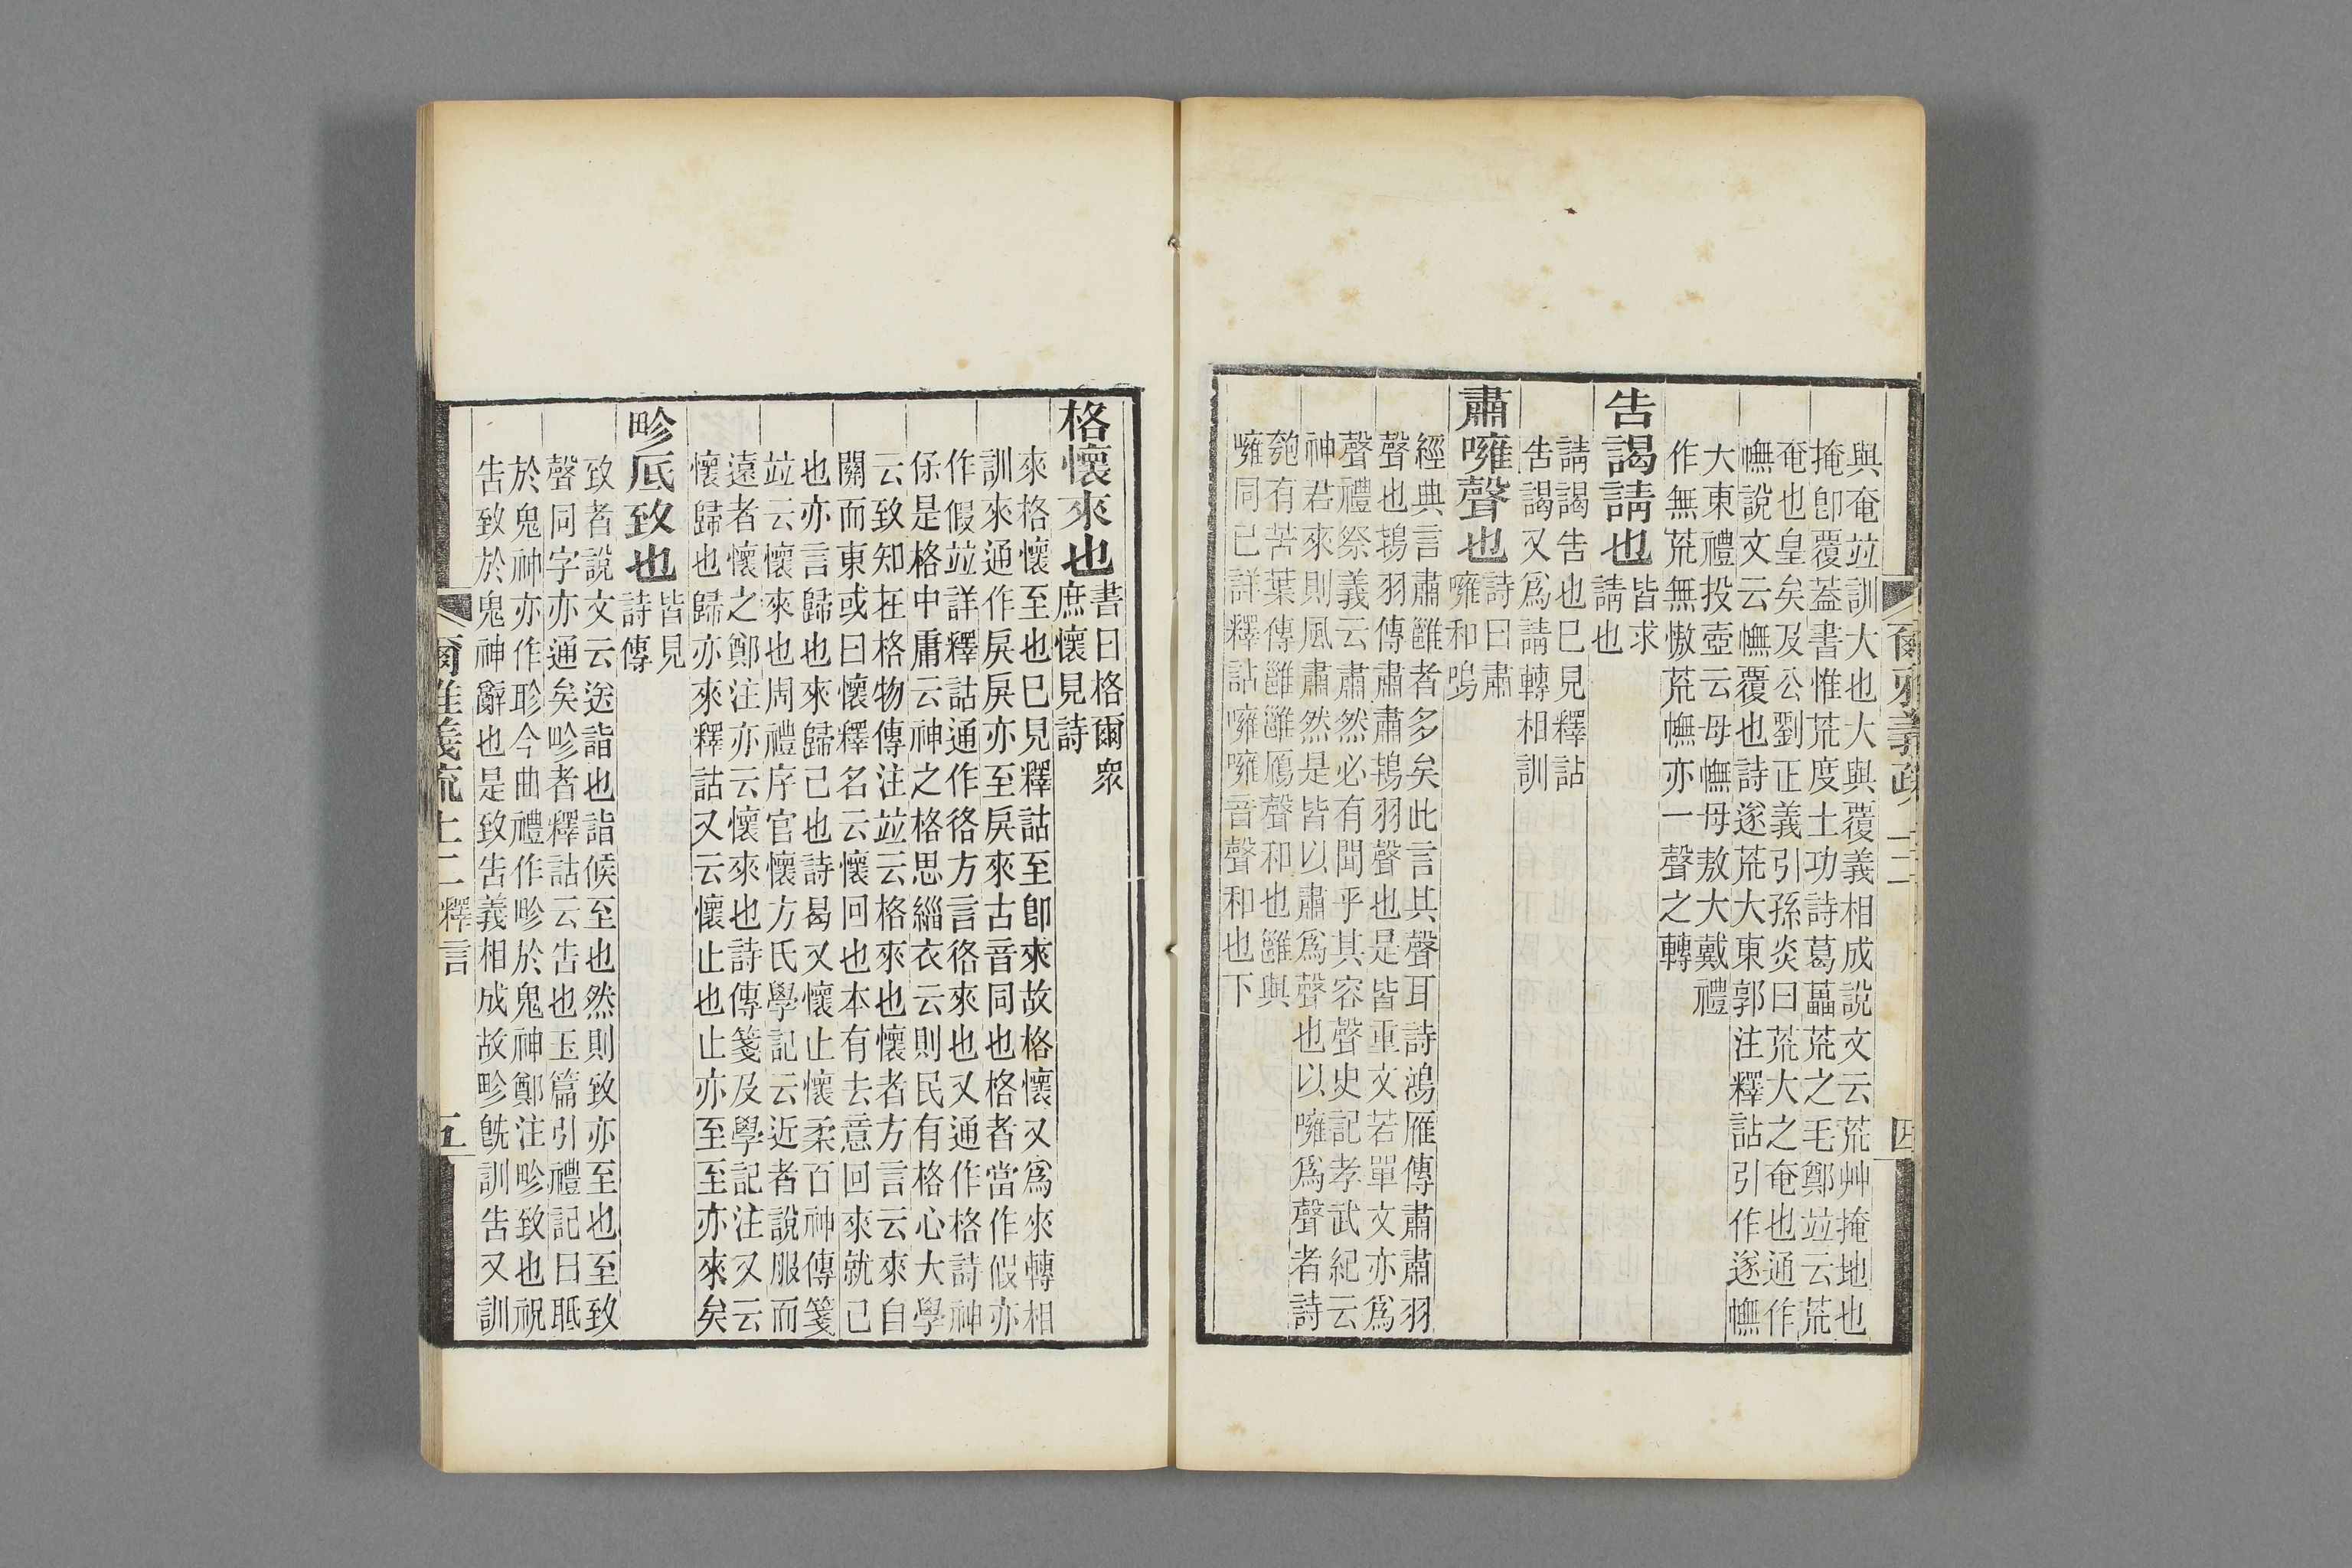 與奄竝訓大也大與覆義相成說文云荒艸掩地也
掩卽覆蓋書惟荒度土功詩葛藟荒之毛鄭竝云荒
奄也皇矣及公劉正義引孫炎曰荒大之奄也通作
幠說文云幠覆也詩遂荒大東郭注釋詁引作遂幠
大東禮投壺云毋幠毋敖大戴禮
作無荒無慠荒幠亦一聲之轉
告謁請也
皆求
請也
請謁告也巳見釋詁
告謁又爲請轉相訓
肅噰聲也
詩曰肅
噰和鳴
經典言肅雝者多矣此言其聲耳詩鴻雁傳肅肅羽
聲也鴇羽傳肅肅鴇羽聲也是皆重文若單文亦爲
聲禮祭義云肅然必有聞乎其容聲史記孝武紀云
神君來則風肅然是皆以肅爲聲也以噰爲聲者詩
匏有苦葉傳雝雝鴈聲和也雝與
噰同已詳釋詁噰噰音聲和也下
爾雅義疏上二
四
格懷來也
書曰格爾衆
庶懷見詩
來格懷至也巳見釋詁至卽來故格懷又爲來轉相
訓來通作戾戾亦至戾來古音同也格者當作假亦
作假竝詳釋詁通作徦方言徦來也又通作格詩神
保是格中庸云神之格思緇衣云則民有格心大學
云致知在格物傳注竝云格來也懷者方言云來自
關而東或曰懷釋名云懷回也本有去意回來就已
也亦言歸也來歸己也詩曷又懷止懷柔百神傳箋
竝云懷來也周禮序官懷方氏學記云近者說服而
遠者懷之鄭注亦云懷來也詩傳箋及學記注又云
懷歸也歸亦來釋詁又云懷止也止亦至至亦來矣
畛厎致也
皆見
詩傳
致者說文云送詣也詣候至也然則致亦至也至致
聲同字亦通矣畛者釋詁云告也玉篇引禮記曰聄
於鬼神亦作聄今曲禮作畛於鬼神鄭注畛致也祝
告致於鬼神辭也是致告義相成故畛旣訓告又訓
爾雅義疏上二釋言
五